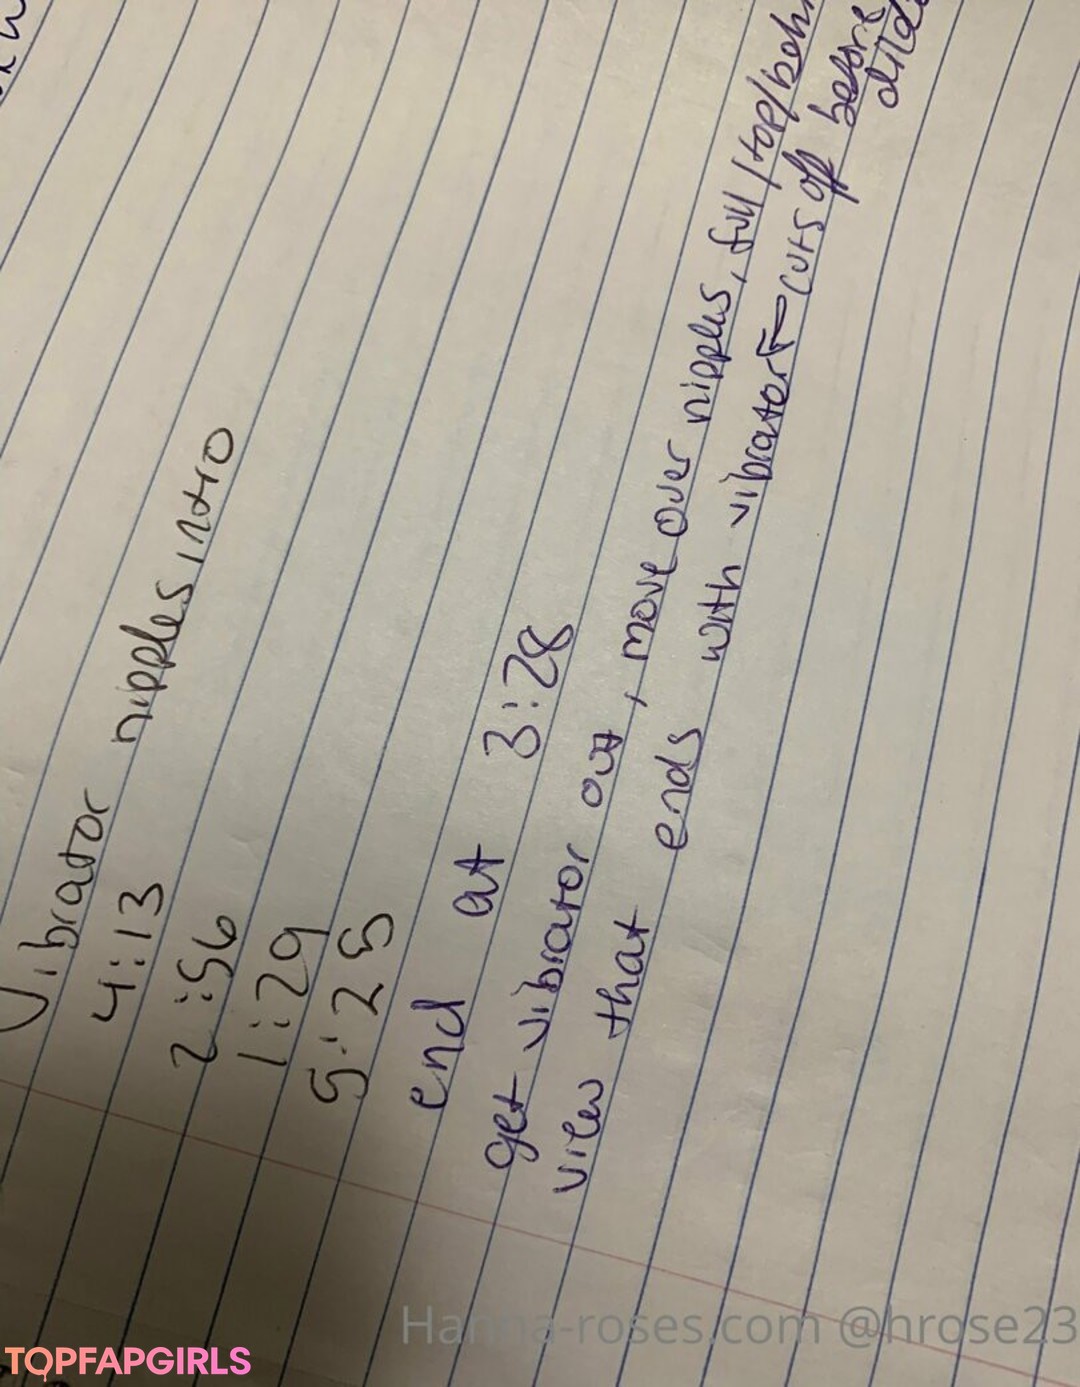 Vibrator nipples intro
4:13
2:56
1:29
5:25
end at 3:28
get vibrator out, move over nipples, full/top/beh
view that ends with vibrator ← cuts off before
Hanna-roses.com @hrose23
TOPFAPGIRLS